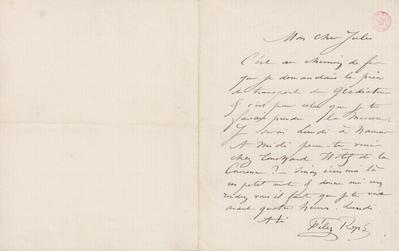 Mon cher Jules
C'est au chemin de fer
que je demandais le prix
de transport du Gladiateur
& c'est pour cela que je te
faisais prendre la mesure.
Je serai lundi à Namur
A Midi peux-tu venir
chez Hôtel de la
Couronne ? – Sinon écris moi là
un petit mot & donne moi un
rendez vous il faut que je te voie
avant quatre heures. Lundi
A toi
Félicien Rops